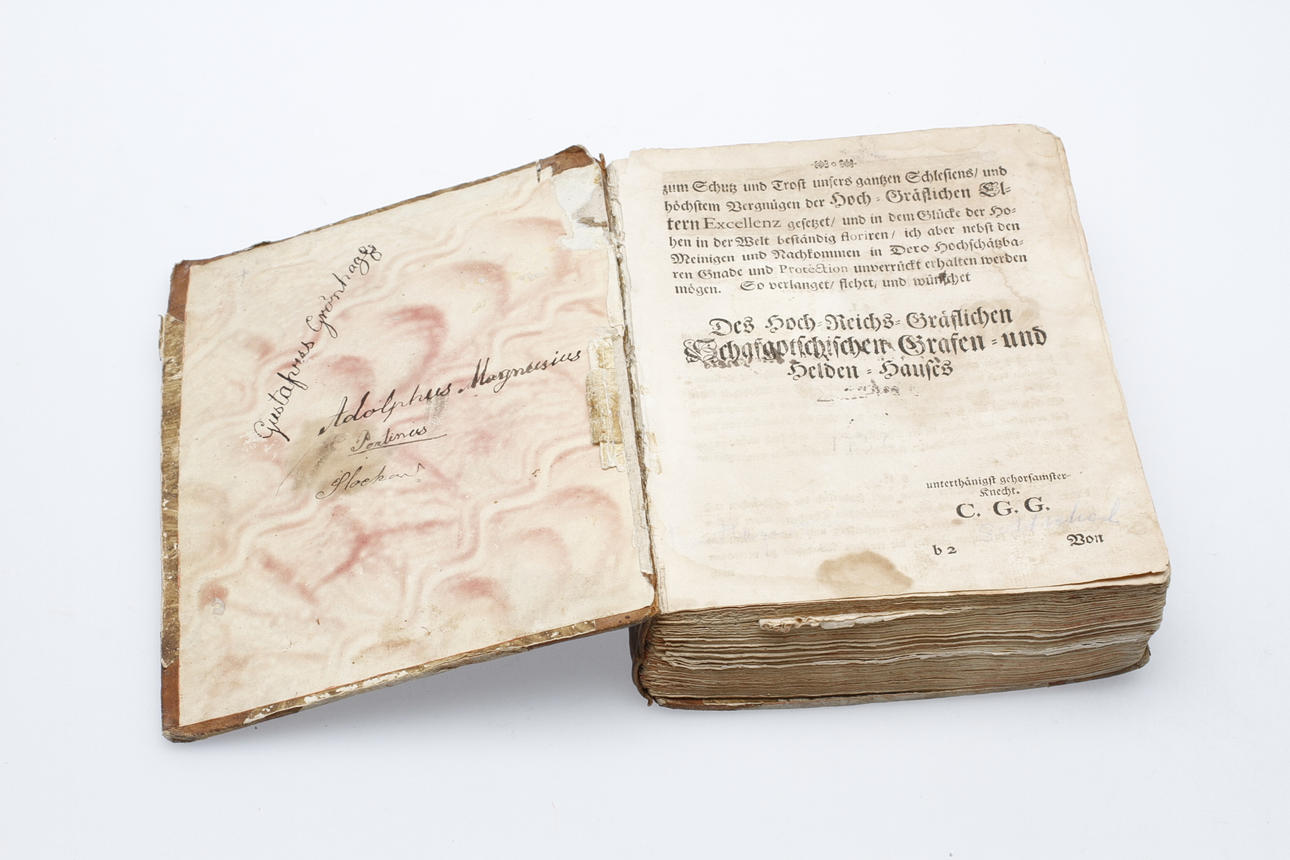 Gustafwus Grönhagg
Adolphus Magnusius
zum Schutz und Trost unsers gantzen Schlesiens/ und
höchstem Vergnügen der Hoch-Gräflichen El-
tern Excellenz gesetzet/ und in dem Glücke der Ho-
hen in der Welt beständig floriren/ ich aber nebst den
Meinigen und Nachkommen in Dero Hochschätzba-
ren Gnade und Protection unverrückt erhalten werden
mögen. So verlanget/ flehet, und wünschet
Des Hoch-Reichs-Gräflichen
Schafgotschischen Grafen-und
Helden-Hauses
unterthänigst gehorsamster
Knecht.
C. G. G.
b 2
Von